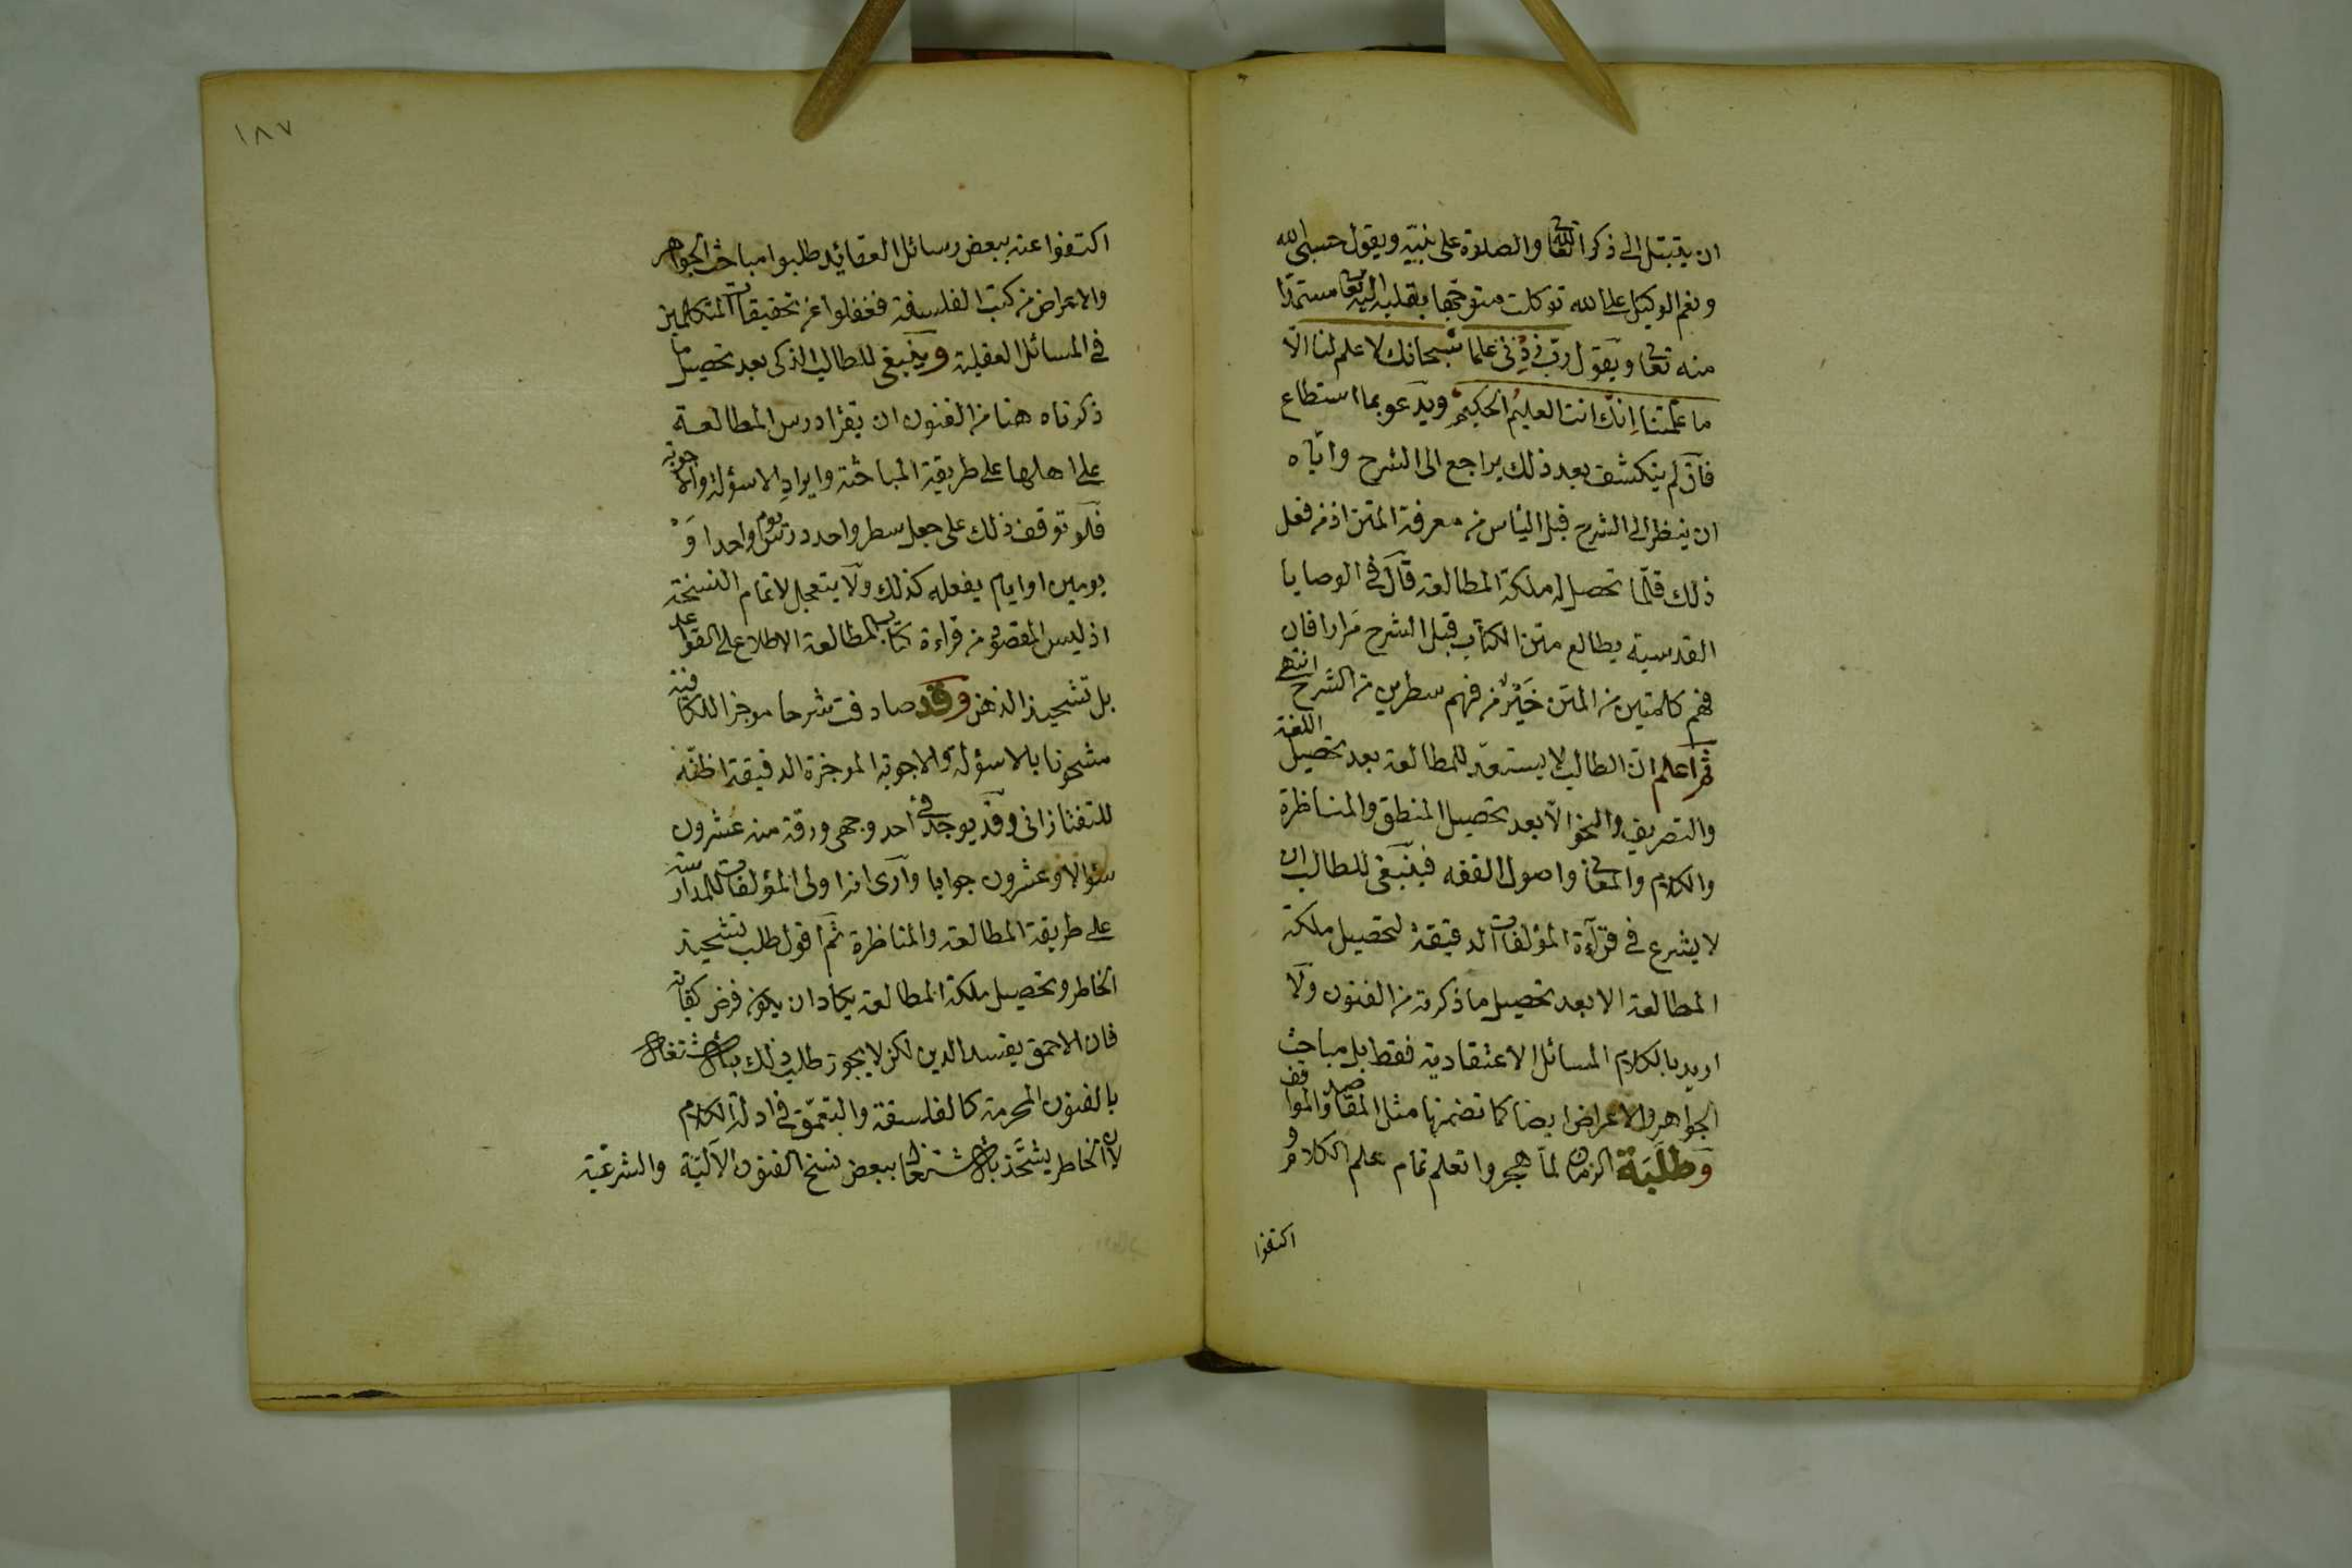 ان يتبتل الى ذكر الله تعالى والصلاة على نبيه ويقول حسبى الله
ونعم الوكيل على الله توكلت متوجها بقلبه اليه تعا مستمدا
منه تعا ويقول رب زدنى علما سبحانك لا علم لنا الا
ما علمتنا انك انت العليم الحكيم ويدعو بما استطاع
فان لم ينكشف بعد ذلك يراجع الى الشرح واياه
ان ينظر الى الشرح قبل اليأس من معرفة المتن اذ من فعل
ذلك قلما تحصل له ملكة المطالعة قال فى الوصايا
القدسية يطالع متن الكتاب قبل الشرح مرارا فان
فهم كلمتين من المتن خير من فهم سطرين من الشرح انتهى
ثم اعلم ان الطالب لا يستعد للمطالعة بعد تحصيل اللغة
والتصريف والنحو الا بعد تحصيل المنطق والمناظرة
والكلام والمعانى واصول الفقه فينبغى للطالب ان
لا يشرع فى قراءة المؤلفات الدقيقة لتحصيل ملكة
المطالعة الا بعد تحصيل ما ذكرته من الفنون ولا
اريد بالكلام المسائل الاعتقادية فقط بل مباحث
الجواهر والاعراض ايضا كما تضمنها مثل المقاصد والمواقف
وطلبة الزمان لما هجروا تعلم تمام علم الكلام و
اكتفوا
١٨٧
اكتفوا عنه ببعض رسائل العقائد طلبوا مباحث الجواهر
والاعراض من كتب الفلسفة فغفلوا عن تحقيقات المتكلمين
فى المسائل العقلية وينبغى للطالب الذكى بعد تحصيل ما
ذكرناه هنا من الفنون ان يقرأ درس المطالعة
على اهلها على طريقة المباحثة وايراد الاسؤلة والاجوبة
فلو توقف ذلك على جعل سطر واحد درس يوم واحد او
يومين او ايام يفعله كذلك ولا يتعجل لاتمام النسخة
اذ ليس المقصود من قراءة كتاب المطالعة الاطلاع على القواعد
بل تشحيذ الذهن وقد صادفت شرحا موجزا للكافية
مشحونا بالاسؤلة والاجوبة الموجزة الدقيقة اظنه
للتفتازانى وقد يوجد فى احد وجهى ورقة منه عشرون
سؤالا وعشرون جوابا وارى انه اولى المؤلفات للمدارسة
على طريقة المطالعة والمناظرة ثم اقول طلب تشحيذ
الخاطر وتحصيل ملكة المطالعة يكاد ان يكون فرض كفاية
فان الاحمق يفسد الدين لكن لا يجوز طلب ذلك بالاشتغال
بالفنون المحرمة كالفلسفة والتعمق فى ادلة الكلام
لان الخاطر يتشحذ بالاشتغال ببعض نسخ الفنون الآلية والشرعية